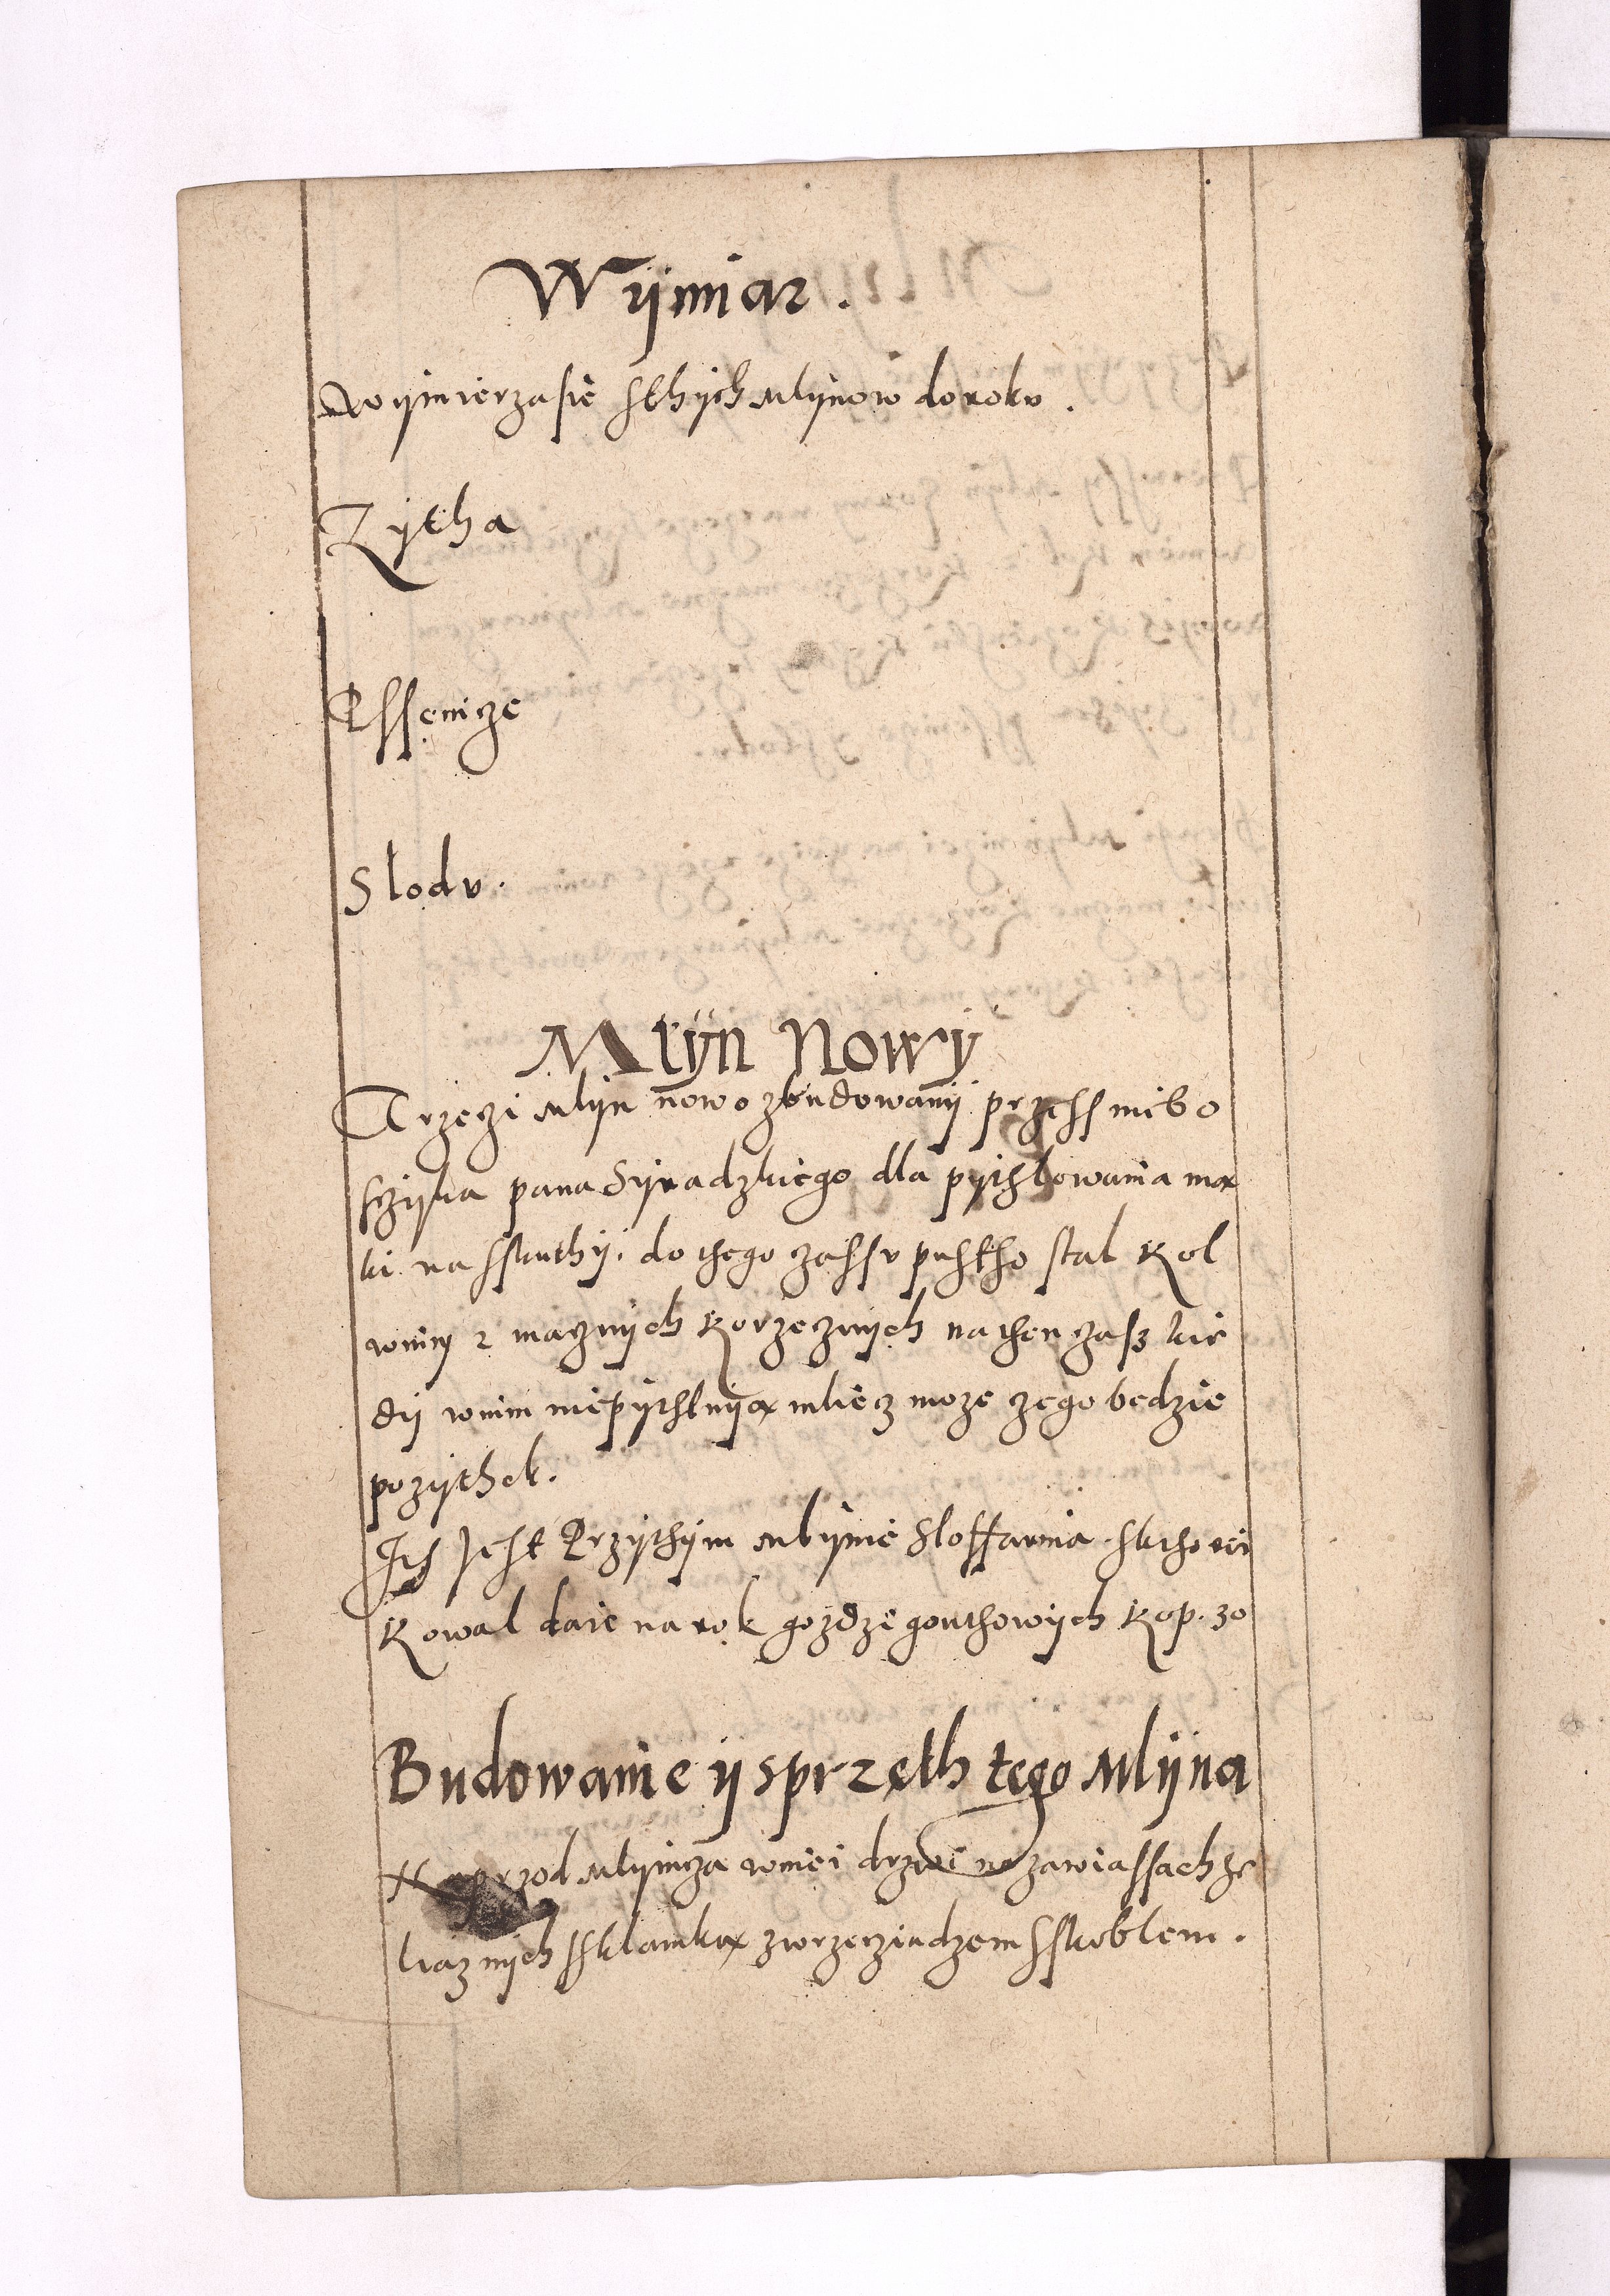 Wÿmiar.
Wÿmierza sie sthÿch Mlÿnow do roku.
Zÿtha
Pssenicze
Slodu.
Mlÿn Nowÿ
Trzeczi Mlÿn nowo zbudowanÿ przess niebo
sczÿka pana Sÿradzkiego dla pÿthlowania mą
ki na sskuthÿ. do thego czassu pustho stal Kol
wnim 2 mącznÿch Korzecznÿch nathen czasz kie
dÿ wnim niepÿthlnÿą mliecz moze zego bedzie
pozÿthek.
Jest Przÿthÿm Mlÿnie Slossarnia skthorei
Kowal daie na rok gozdzi gonthowÿch Kop. 30
Budowanie ÿ sprzęth tego Mlÿna
Naprzod Mlÿnicza wniei drzwi na zawiassach ze
liaznÿch sklamką zwrzeczindzem sskoblem.